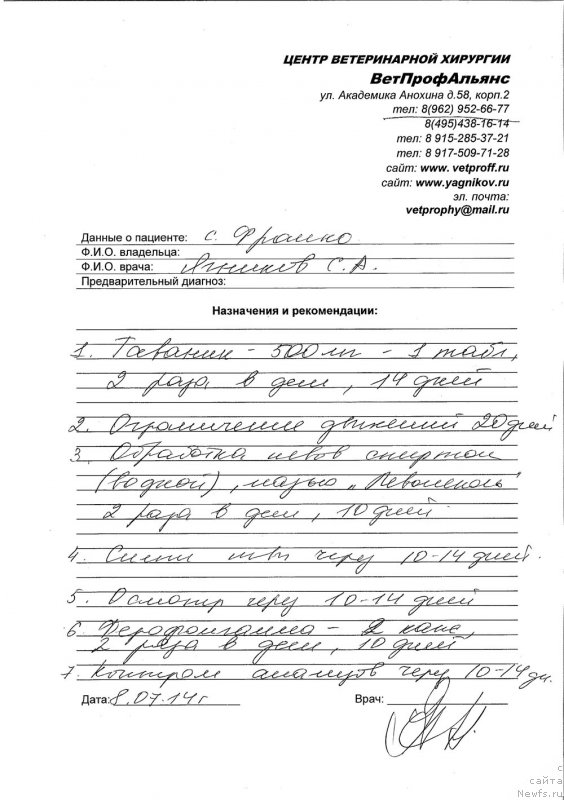 ЦЕНТР ВЕТЕРИНАРНОЙ ХИРУРГИИ
ВетПрофАльянс
ул. Академика Анохина д.58, корп.2
тел: 8(962) 952-66-77
8(495)438-16-14
тел: 8 915-285-37-21
тел: 8 917-509-71-28
сайт: www. vetproff.ru
сайт: www.yagnikov.ru
эл. почта:
vetprophy@mail.ru
Данные о пациенте: с. Франко
Ф.И.О. владельца:
Ф.И.О. врача: Ягников С.А.
Предварительный диагноз:
Назначения и рекомендации:
1. Таваник - 500мг - 1 табл,
2 раза в день, 14 дней
2. Ограничение движений 20дней
3. Обработка швов спиртом
(водкой), мазью „Левомеколь"
2 раза в день, 10 дней.
4. Снять швы через 10-14 дней.
5. Осмотр через 10-14 дней
6. - 2 капс,
2 раза в день, 10 дней
7. Контроль анализов через 10-14 дн.
Дата: 8.07.14г Врач:
с
сайта
Newfs.ru